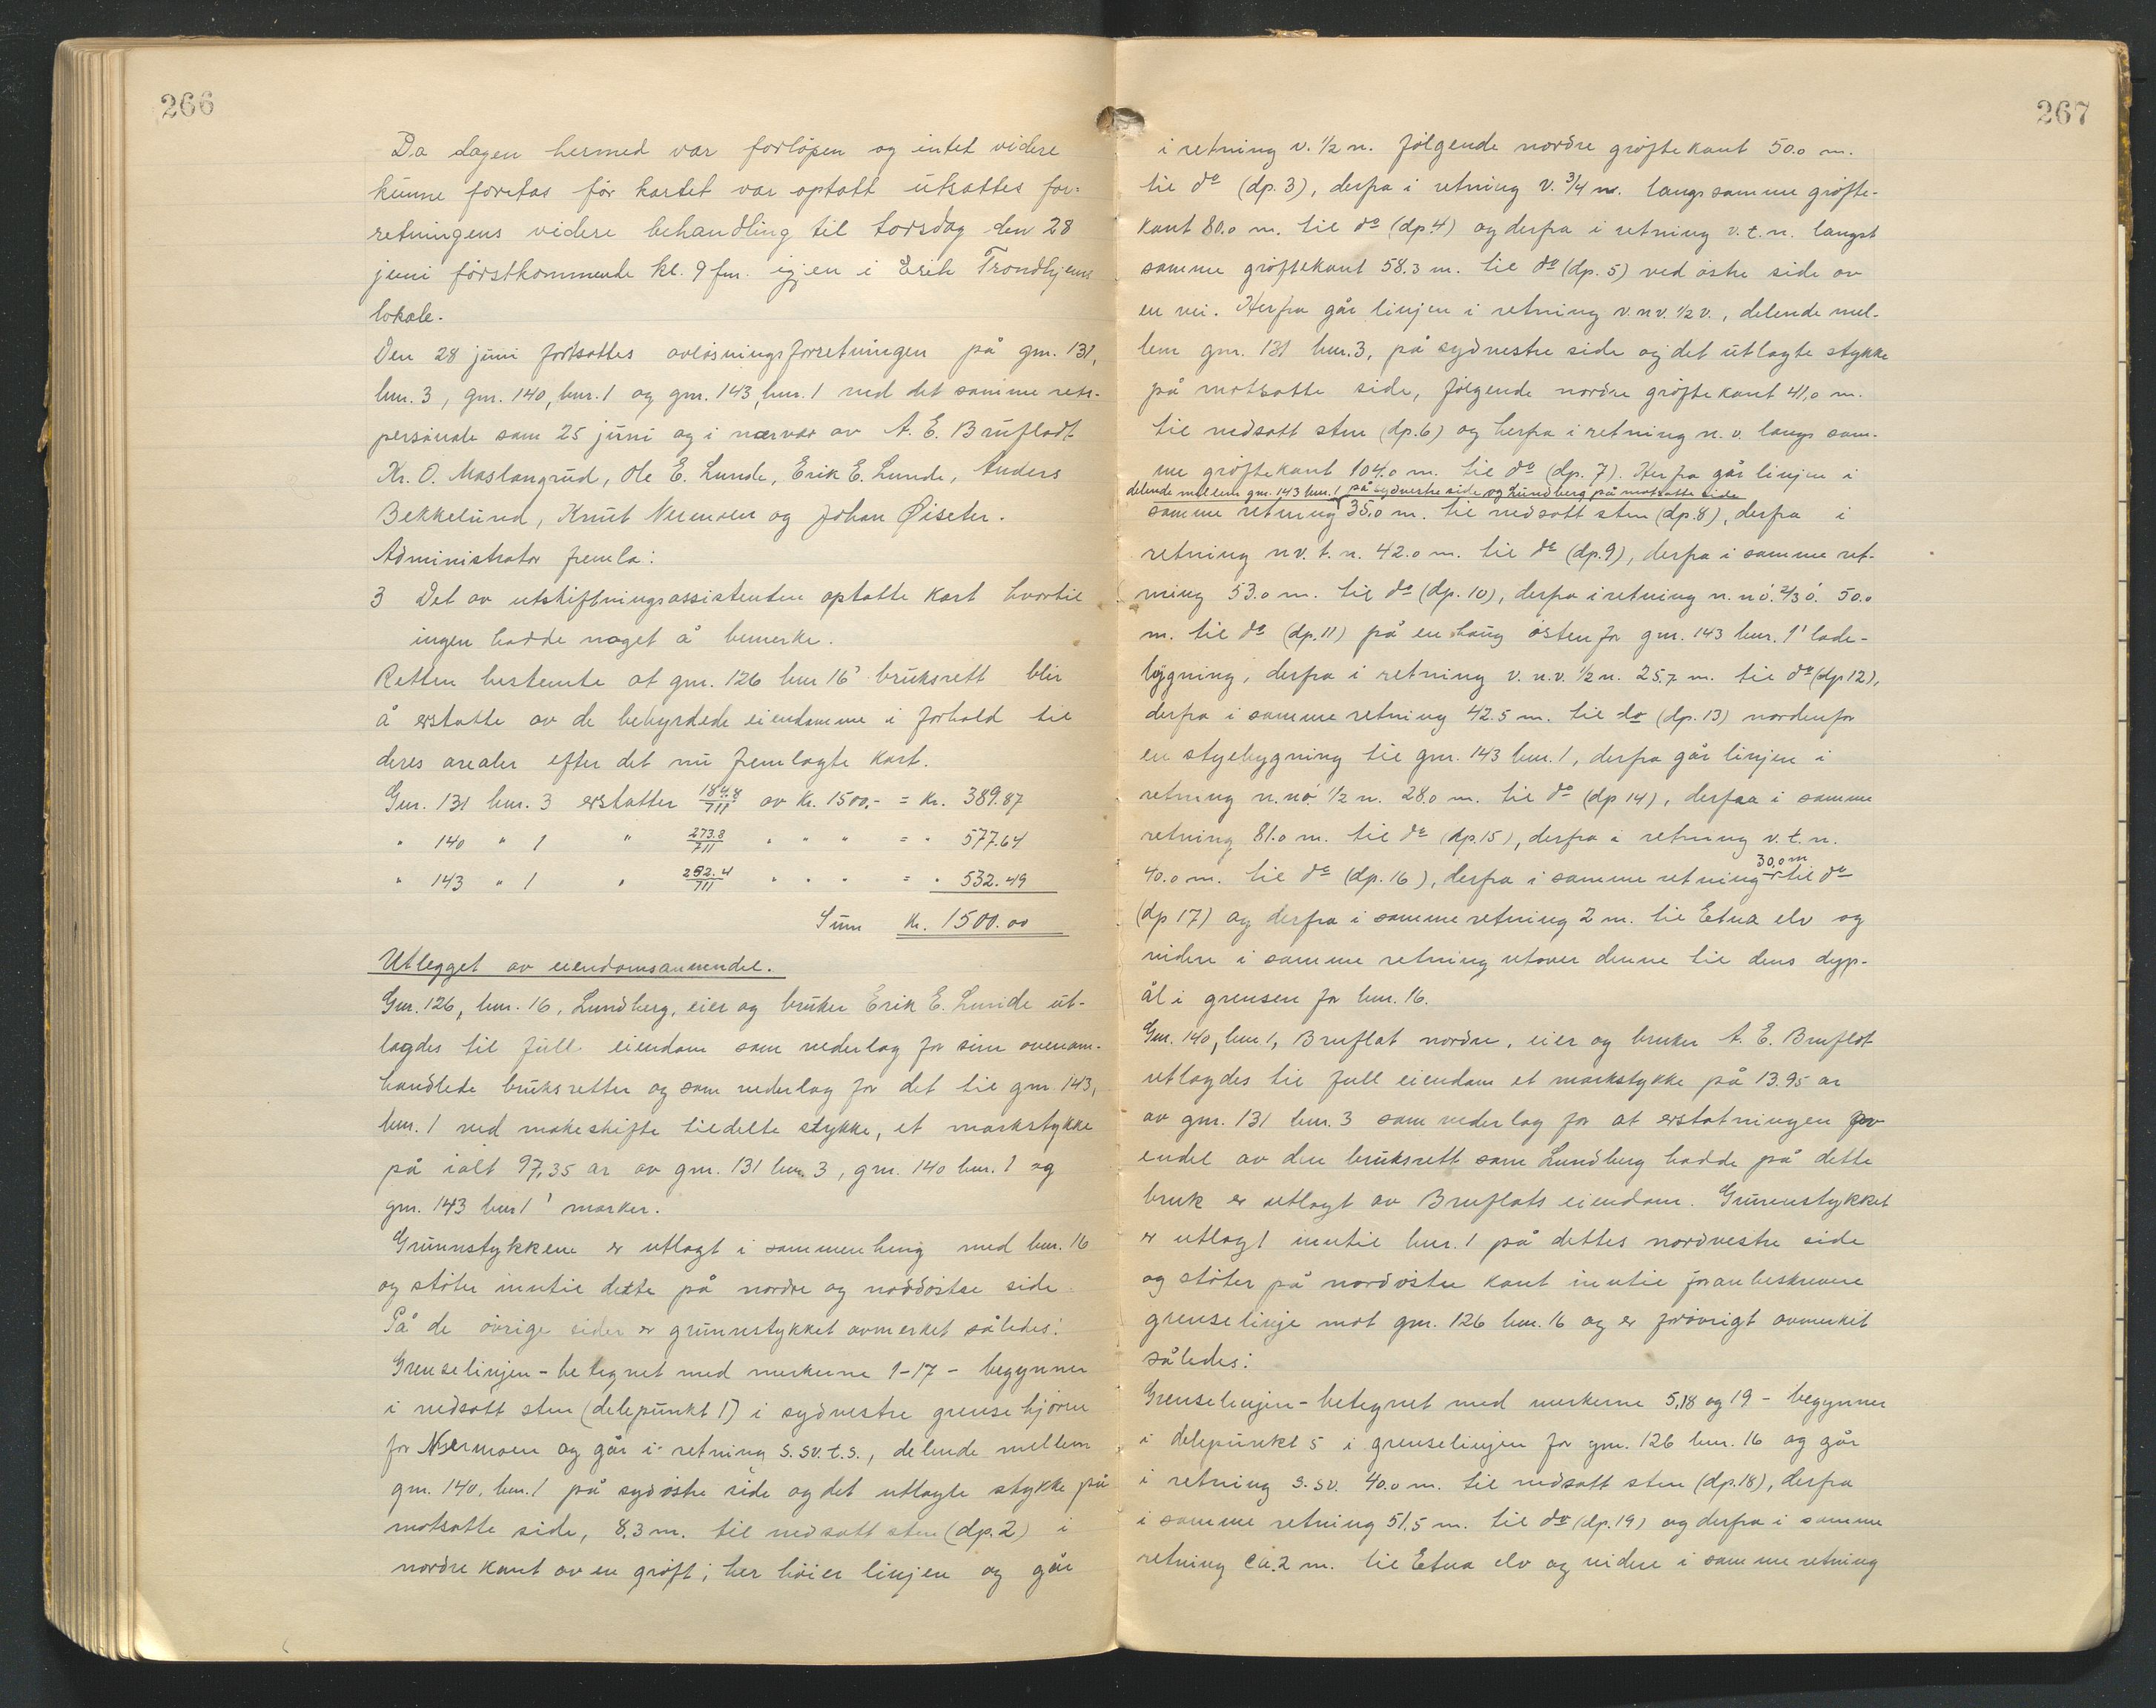 266
Da dagen hermed var forløpen og intet videre
kunne foretas før kartet var optatt utsattes for-
retningens videre behandling til torsdag den 28
juni førstkommende kl. 9 fm. igjen i Erik Trondhjems
lokale.
Den 28 juni fortsattes avløsningsforretningen på gnr. 131,
bnr. 3, gnr. 140, bnr. 1 og gnr. 143, bnr. 1 med det samme retts-
personale som 25 juni og i nærvær av A. E. Bruflodt
Kr. O. Maslangrud, Ole E. Lunde, Erik E. Lunde, Anders
Bekkelund, Knut Nermoen og Johan Øiseter.
Administrator fremla:
3 Det av utskiftningsassistenten optatte kart hvortil
ingen hadde noget å bemerke.
Retten bestemte at gnr. 126 bnr 16' bruksrett blir
å erstatte av de beheftede eiendomme i forhold til
deres arealer efter det nu fremlagte kart.
Gnr. 131 bnr. 3 erstatter 184.8/711 av Kr. 1500,- = Kr. 389.87
" 140 " 1 " 273.8/711 " " " = " 577.64
" 143 " 1 " 252.4/711 " " " = " 532.49
Sum Kr. 1500.00
Utlegget av eiendomsanvendel.
Gnr. 126, bnr. 16, Lundberg, eier og bruker Erik E. Lunde ut-
lagdes til full eiendom som vederlag for sine ovenom-
handlede bruksretter og som vederlag for det til gnr. 143,
bnr. 1 ved makeskifte tildelte stykke, et markstykke
på ialt 97,35 ar av gnr. 131 bnr. 3, gnr. 140 bnr. 1 og
gnr. 143 bnr 1' marker.
Grunnstykkene er utlagt i sammenheng med bnr. 16
og støter inntil dette på nordre og nordøstre side.
På de øvrige sider er grunnstykket avmerket således:
Grenselinjen - betegnet med merkerne 1-17 - begynner
i nedsatt sten (delepunkt 1) i sydvestre grensehjørne
for Nermoen og går i retning s.sv.t.s., delende mellem
gnr. 140, bnr. 1 på sydøstre side og det utlagte stykke på
motsatte side, 8.3 m. til nedsatt sten (dp. 2) i
nordre kant av en grøft; her bøier linjen og går
267
i retning v. 1/2 n. følgende nordre grøftekant 50.0 m.
til do (dp. 3), derfra i retning v. 3/4 n. langs samme grøfte-
kant 80.0 m. til do (dp. 4) og derfra i retning v.t.n. langst
samme grøftekant 58.3 m. til do (dp. 5) ved østre side av
en vei. Herfra går linjen i retning v.nv. 1/2 v., delende mel-
lem gnr. 131 bnr. 3, på sydvestre side og det utlagte stykke
på motsatte side, følgende nordre grøftekant 41,0 m.
til nedsatt sten (dp. 6) og herfra i retning n.v. langs sam-
me grøftekant 104.0 m. til do (dp. 7). Herfra går linjen i
delende mellem gnr. 143 bnr. 1 på sydvestre side og Lundberg på motsatte side
samme retning 35.0 m. til nedsatt sten (dp. 8), derfra i
retning nv. t. n. 42.0 m. til do (dp. 9), derfra i samme ret-
ning 53.0 m. til do (dp. 10), derfra i retning n.nø. 2/3 ø. 50.0
m. til do (dp. 11) på en haug østenfor gnr. 143 bnr. 1' lade-
bygning, derfra i retning v.n.v. 1/2 n. 25.7 m. til do (dp 12),
derfra i samme retning 42.5 m. til do (dp. 13) nordenfor
en styebygning til gnr. 143 bnr. 1, derfra går linjen i
retning n.nø. 1/2 n. 28.0 m. til do (dp 14), derfaa i samme
retning 81.0 m. til do (dp. 15), derfra i retning v.t.n.
30,0 m
40.0 m. til do (dp. 16), derfra i samme retning til do
(dp 17) og derfra i samme retning 2 m. til Etna elv og
videre i samme retning utover denne til dens dyp-
ål i grensen for bnr. 16.
Gnr. 140, bnr. 1, Bruflat nordre, eier og bruker A. E. Bruflot
utlagdes til full eiendom et markstykke på 13.95 ar
av gnr. 131 bnr. 3 som vederlag for at erstatningen for
endel av den bruksrett som Lundberg hadde på dette
bruk er utlagt av Bruflats eiendom. Grunnstykket
er utlagt inntil bnr. 1 på dettes nordvestre side
og støter på nordøstre kant inntil foranbeskrevne
grenselinje mot gnr. 126 bnr. 16 og er forøvrigt avmerket
således:
Grenselinjen - betegnet med merkerne 5, 18 og 19 - begynner
i delepunkt 5 i grenselinjen for gnr. 126 bnr. 16 og går
i retning s.sv. 40.0 m. til nedsatt sten (dp. 18), derfra
i samme retning 51.5 m. til do (dp. 19) og derfra i samme
retning ca. 2 m. til Etna elv og videre i samme retning